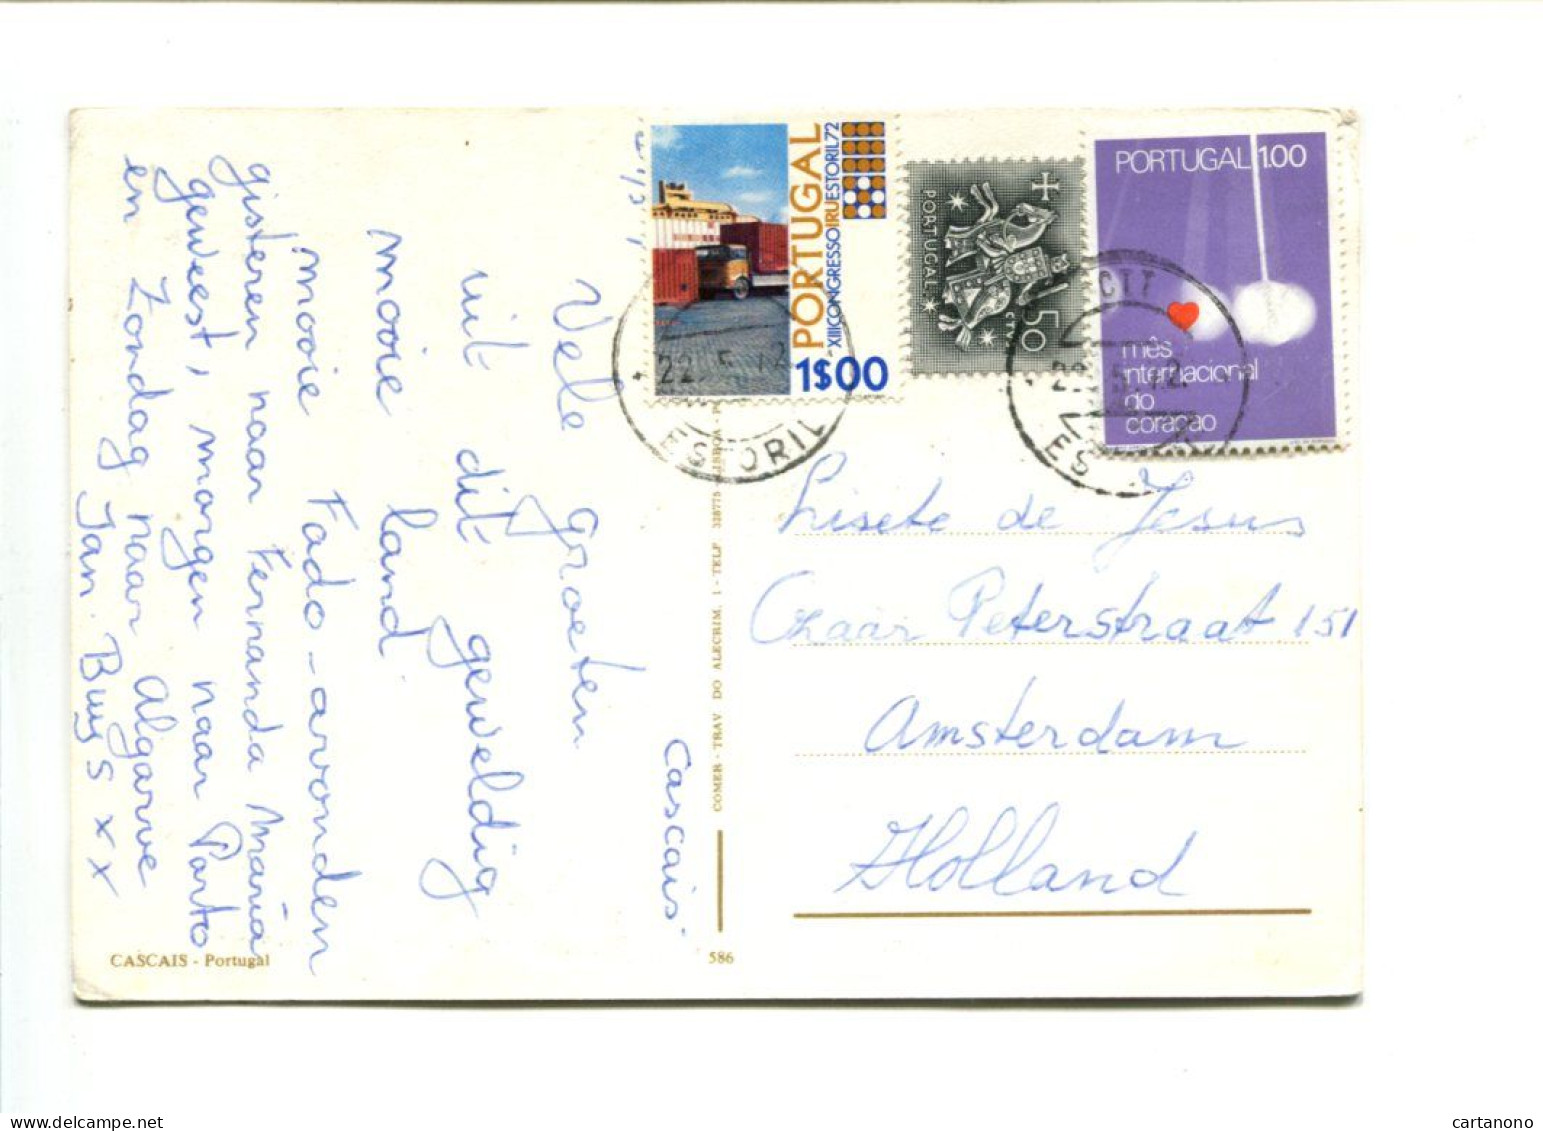 Cascais.
Vele groeten
uit dit geweldig
mooie land
mooie Fado-avonden
gisteren naar Fernanda Maria
geweest, morgen naar Porto
en Zondag naar Algarve
Jan. Buys x x
CASCAIS - Portugal
586
COMER - TRAV DO ALECRIM, 1 - TELF 328775 - LISBOA - P
PORTUGAL
XIII CONGRESSO IRU ESTORIL 72
1$00
PORTUGAL
CTT
50
PORTUGAL 1.00
mês
internacional
do
coração
22.5.72
ESTORIL
CTT
22.5.72
ES
Lisete de Jesus
Czaar Peterstraat 151
Amsterdam
Holland
cartanono